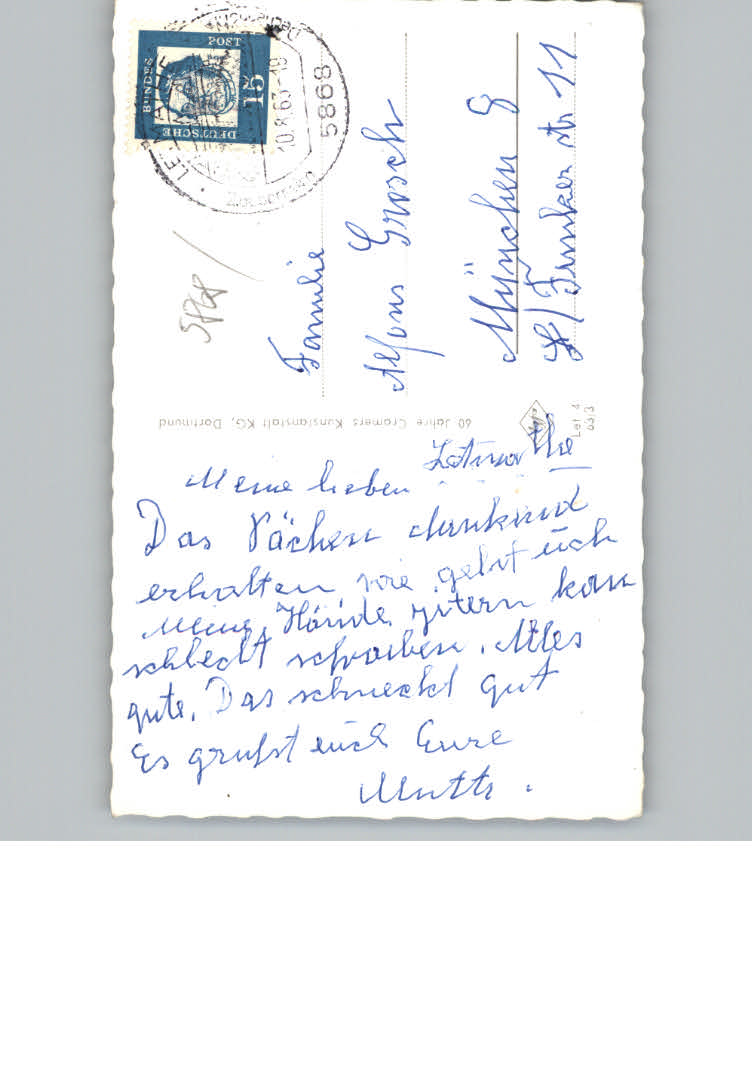 Letmathe
Meine lieben
Das Pächen dankend
erhalten wie geht euch
Meine Hände zitern kan
schlecht schraiben. Alles
gute. Das schmeckt gut
Es grußst euch Eure
Mutti.
Familie
Alfons Grosch
München 8
Funker str 11
5868
60 Jahre Cramers Kunstanstalt KG, Dortmund
Let 4
63/3
DEUTSCHE
BUNDES
15
10.8.63-18
5868